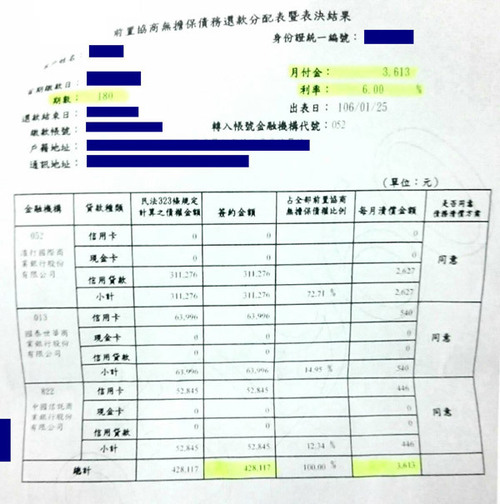 前置協商無擔保債務還款分配表暨表決結果
身份證統一編號：
姓名：
首期繳款日：
月付金： 3,613
期數： 180
利率： 6.00 %
還款結束日：
出表日： 106/01/25
繳款帳號：
轉入帳號金融機構代號：052
戶籍地址：
通訊地址：
(單位：元)
金融機構 貸款種類 民法323條規定計算之債權金額 簽約金額 占全部前置協商無擔保債權比例 每月清償金額 是否同意債務清償方案
052 渣打國際商業銀行股份有限公司 信用卡 0 0 0 同意
現金卡 0 0 0
信用貸款 311,276 311,276 2,627
小計 311,276 311,276 72.71 % 2,627
013 國泰世華商業銀行股份有限公司 信用卡 63,996 63,996 540 同意
現金卡 0 0 0
信用貸款 0 0 0
小計 63,996 63,996 14.95 % 540
822 中國信託商業銀行股份有限公司 信用卡 52,845 52,845 446 同意
現金卡 0 0 0
信用貸款 0 0 0
小計 52,845 52,845 12.34 % 446
總計 428,117 428,117 100.00 % 3,613